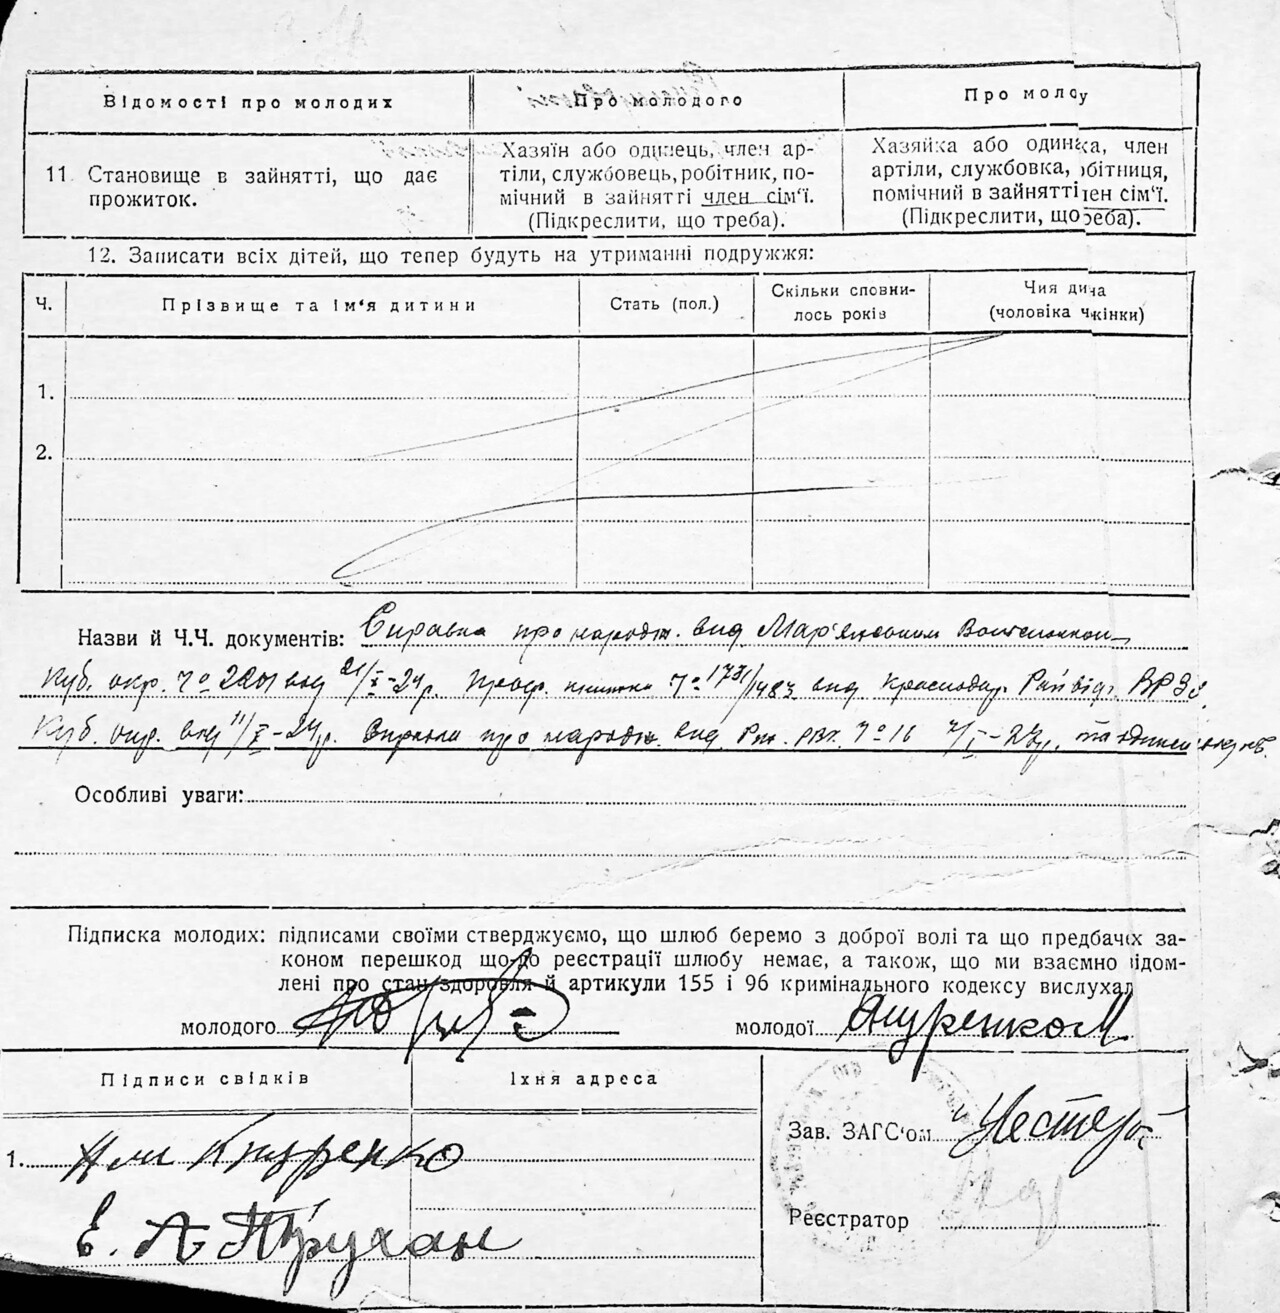 Відомості про молодих
Про молодого
Про молоу
11 Становище в зайнятті, що дає
прожиток.
Хазяїн або одінець, член ар-
тіли, службовець, робітник, по-
мічний в зайнятті член сім'ї.
(Підкреслити, що треба).
Хазяйка або одинака, член
артіли, службовка, обітниця,
помічний в зайнятті лен сім'ї.
(Підкреслити, що реба).
12. Записати всіх дітей, що тепер будуть на утриманні подружжя:
Ч.
Прізвище та ім'я дитини
Стать (пол.)
Скільки сповни-
лось років
Чия дина
(чоловіка ч жінки)
1.
2.
Назви й Ч.Ч. документів: Справка про народж. вид Мар'янським
Куб. окр. 21/X-24р. 1731/1483 вид Краснодар. Рай від.
Куб. окр. від 11/X-24р. Справка про народж. вид 16
Особливі уваги:
Підписка молодих: підписами своїми стверджуємо, що шлюб беремо з доброї волі та що предбачх за-
коном перешкод що-до реєстрації шлюбу немає, а також, що ми взаємно відом-
лені про стан здоровля й артикули 155 і 96 кримінального кодексу вислухал
молодого
молодої Кнуренко М.
Підписи свідків
Їхня адреса
1. Кнуренко
Е. А Петрухан
Зав. ЗАГС'ом
Реєстратор